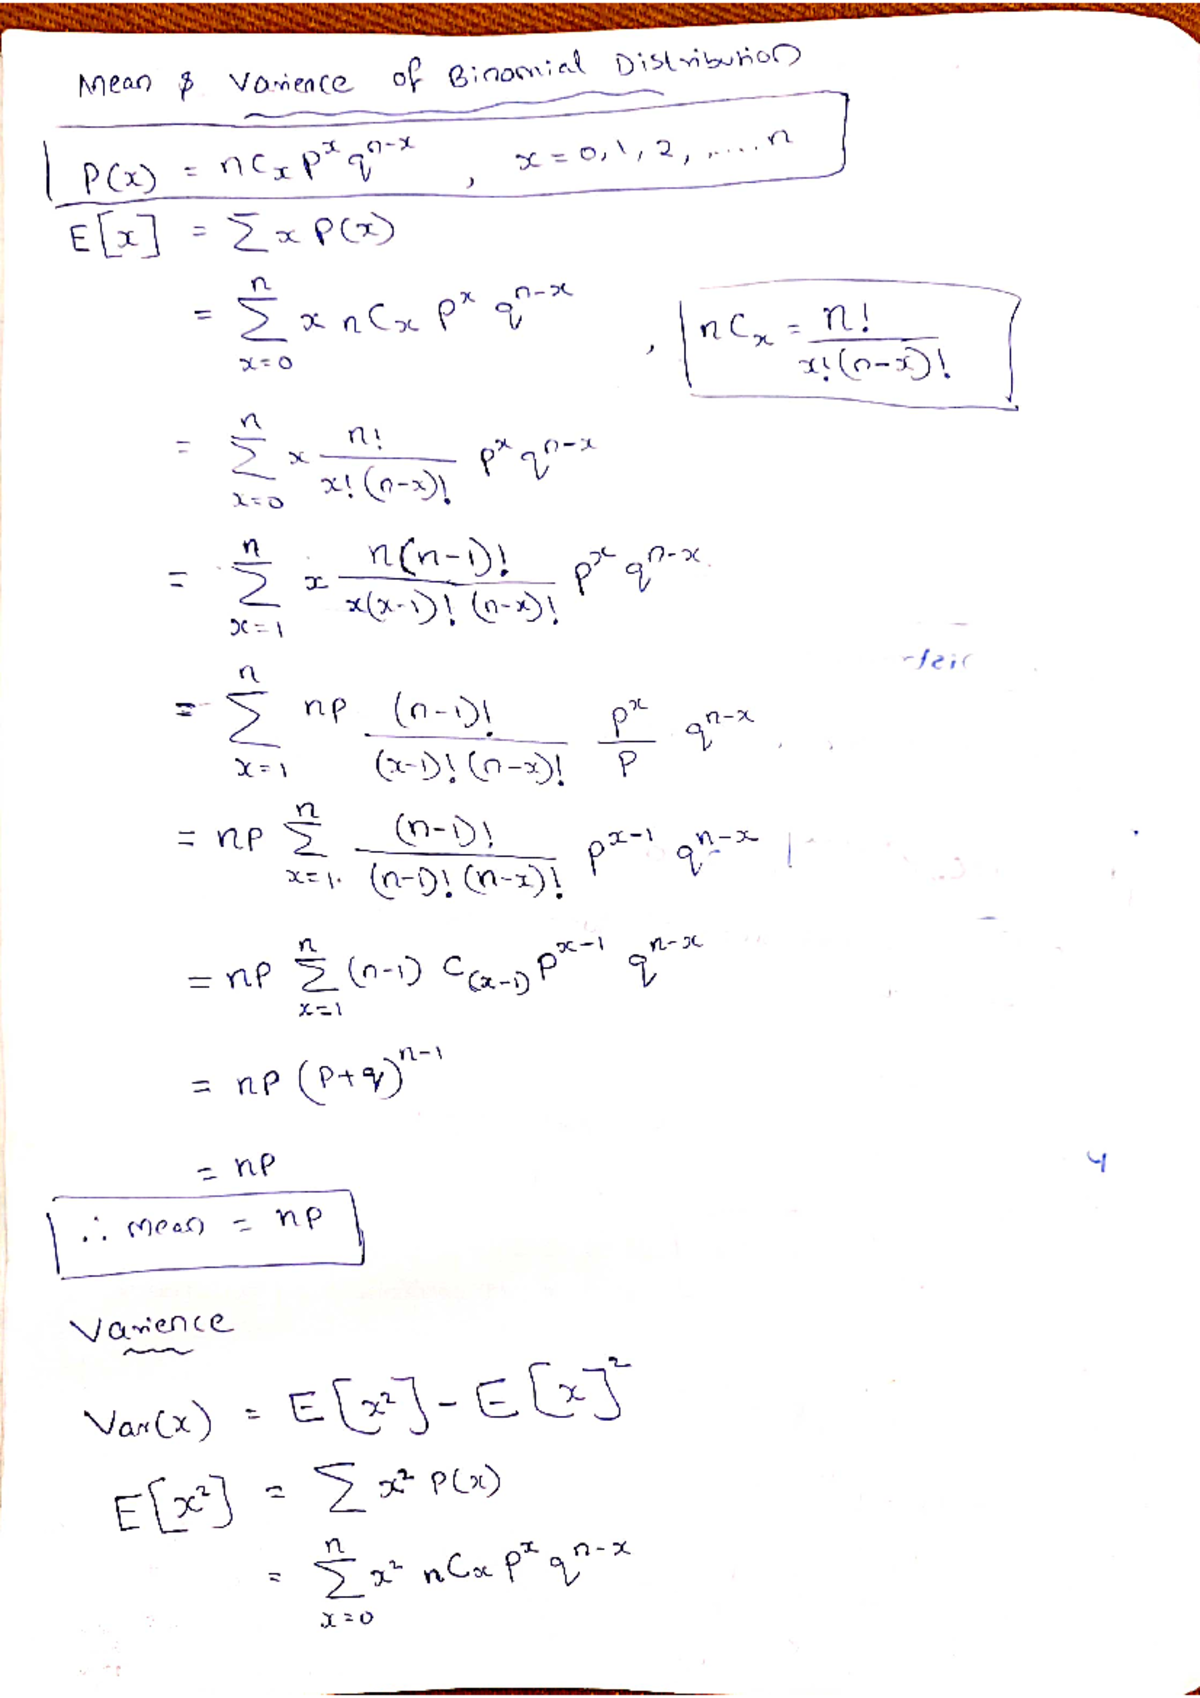 Mean & Varience of Binomial Distribution
P(x) = nCₓ pˣ qⁿ⁻ˣ , x = 0, 1, 2, ..... n
E[x] = Σ x P(x)
= Σₓ₌₀ⁿ x nCₓ pˣ qⁿ⁻ˣ , nCₓ = n! / x!(n-x)!
= Σₓ₌₀ⁿ x n! / x!(n-x)! pˣ qⁿ⁻ˣ
= Σₓ₌₁ⁿ x n(n-1)! / x(x-1)! (n-x)! pˣ qⁿ⁻ˣ
= Σₓ₌₁ⁿ np (n-1)! / (x-1)! (n-x)! pˣ / p qⁿ⁻ˣ
= np Σₓ₌₁ⁿ (n-1)! / (n-1)! (n-x)! pˣ⁻¹ qⁿ⁻ˣ
= np Σₓ₌₁ⁿ (n-1) C₍ₓ₋₁₎ pˣ⁻¹ qⁿ⁻ˣ
= np (p+q)ⁿ⁻¹
= np
∴ mean = np
Varience
Var(x) = E[x²] - E[x]²
E[x²] = Σ x² P(x)
= Σₓ₌₀ⁿ x² nCₓ pˣ qⁿ⁻ˣ